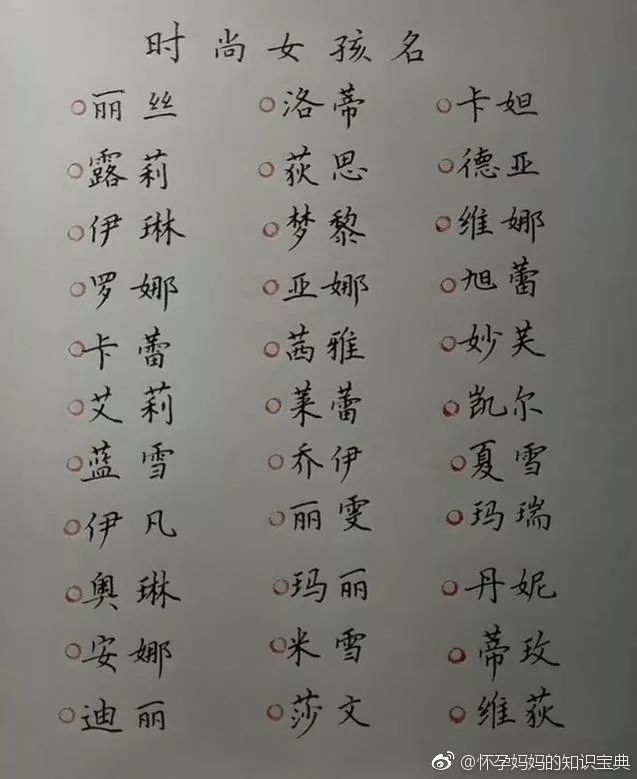 时尚女孩名
丽丝 洛蒂 卡妲
露莉 荻思 德亚
伊琳 梦黎 维娜
罗娜 亚娜 旭蕾
卡蕾 茜雅 妙芙
艾莉 莱蕾 凯尔
蓝雪 乔伊 夏雪
伊凡 丽雯 玛瑞
奥琳 玛丽 丹妮
安娜 米雪 蒂玫
迪丽 莎文 维荻
@怀孕妈妈的知识宝典